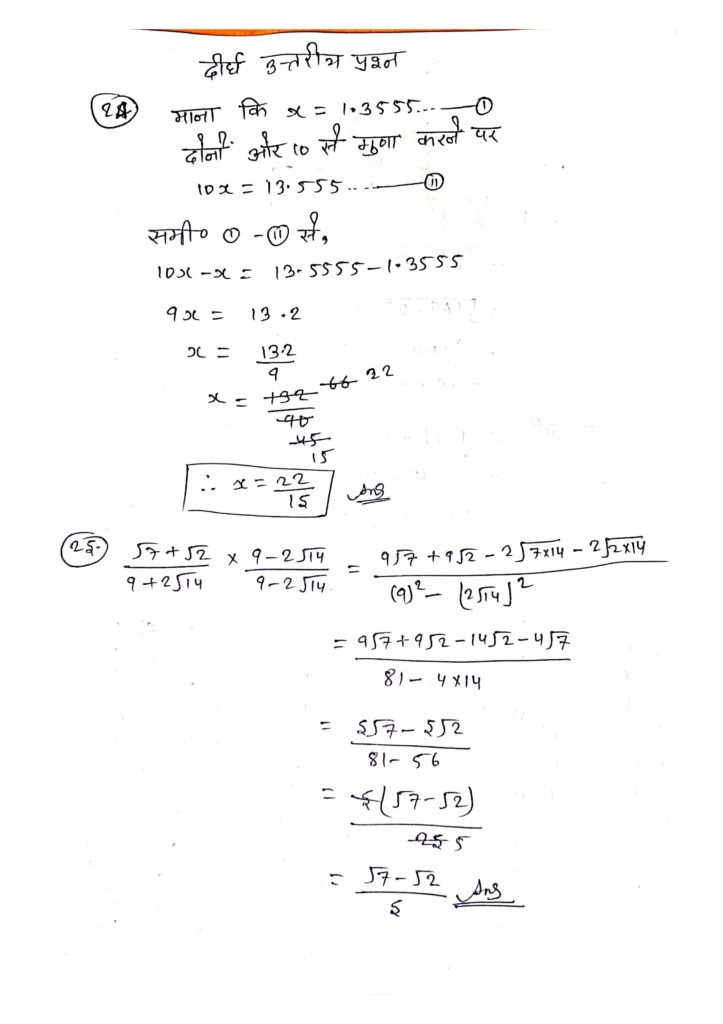 दीर्घ उत्तरीय प्रश्न
24 माना कि x = 1.3555... ——(I)
दोनों ओर 10 से गुणा करने पर
10x = 13.555.... ——(II)
समी० (I) - (II) से,
10x - x = 13.5555 - 1.3555
9x = 13.2
x = 13.2/9
x = 132/90 66/45 22/15
∴ x = 22/15 Ans
25. (√7 + √2)/(9 + 2√14) × (9 - 2√14)/(9 - 2√14) = (9√7 + 9√2 - 2√7×14 - 2√2×14)/((9)² - (2√14)²)
= (9√7 + 9√2 - 14√2 - 4√7)/(81 - 4×14)
= (5√7 - 5√2)/(81 - 56)
= 5(√7 - √2)/25 5
= (√7 - √2)/5 Ans